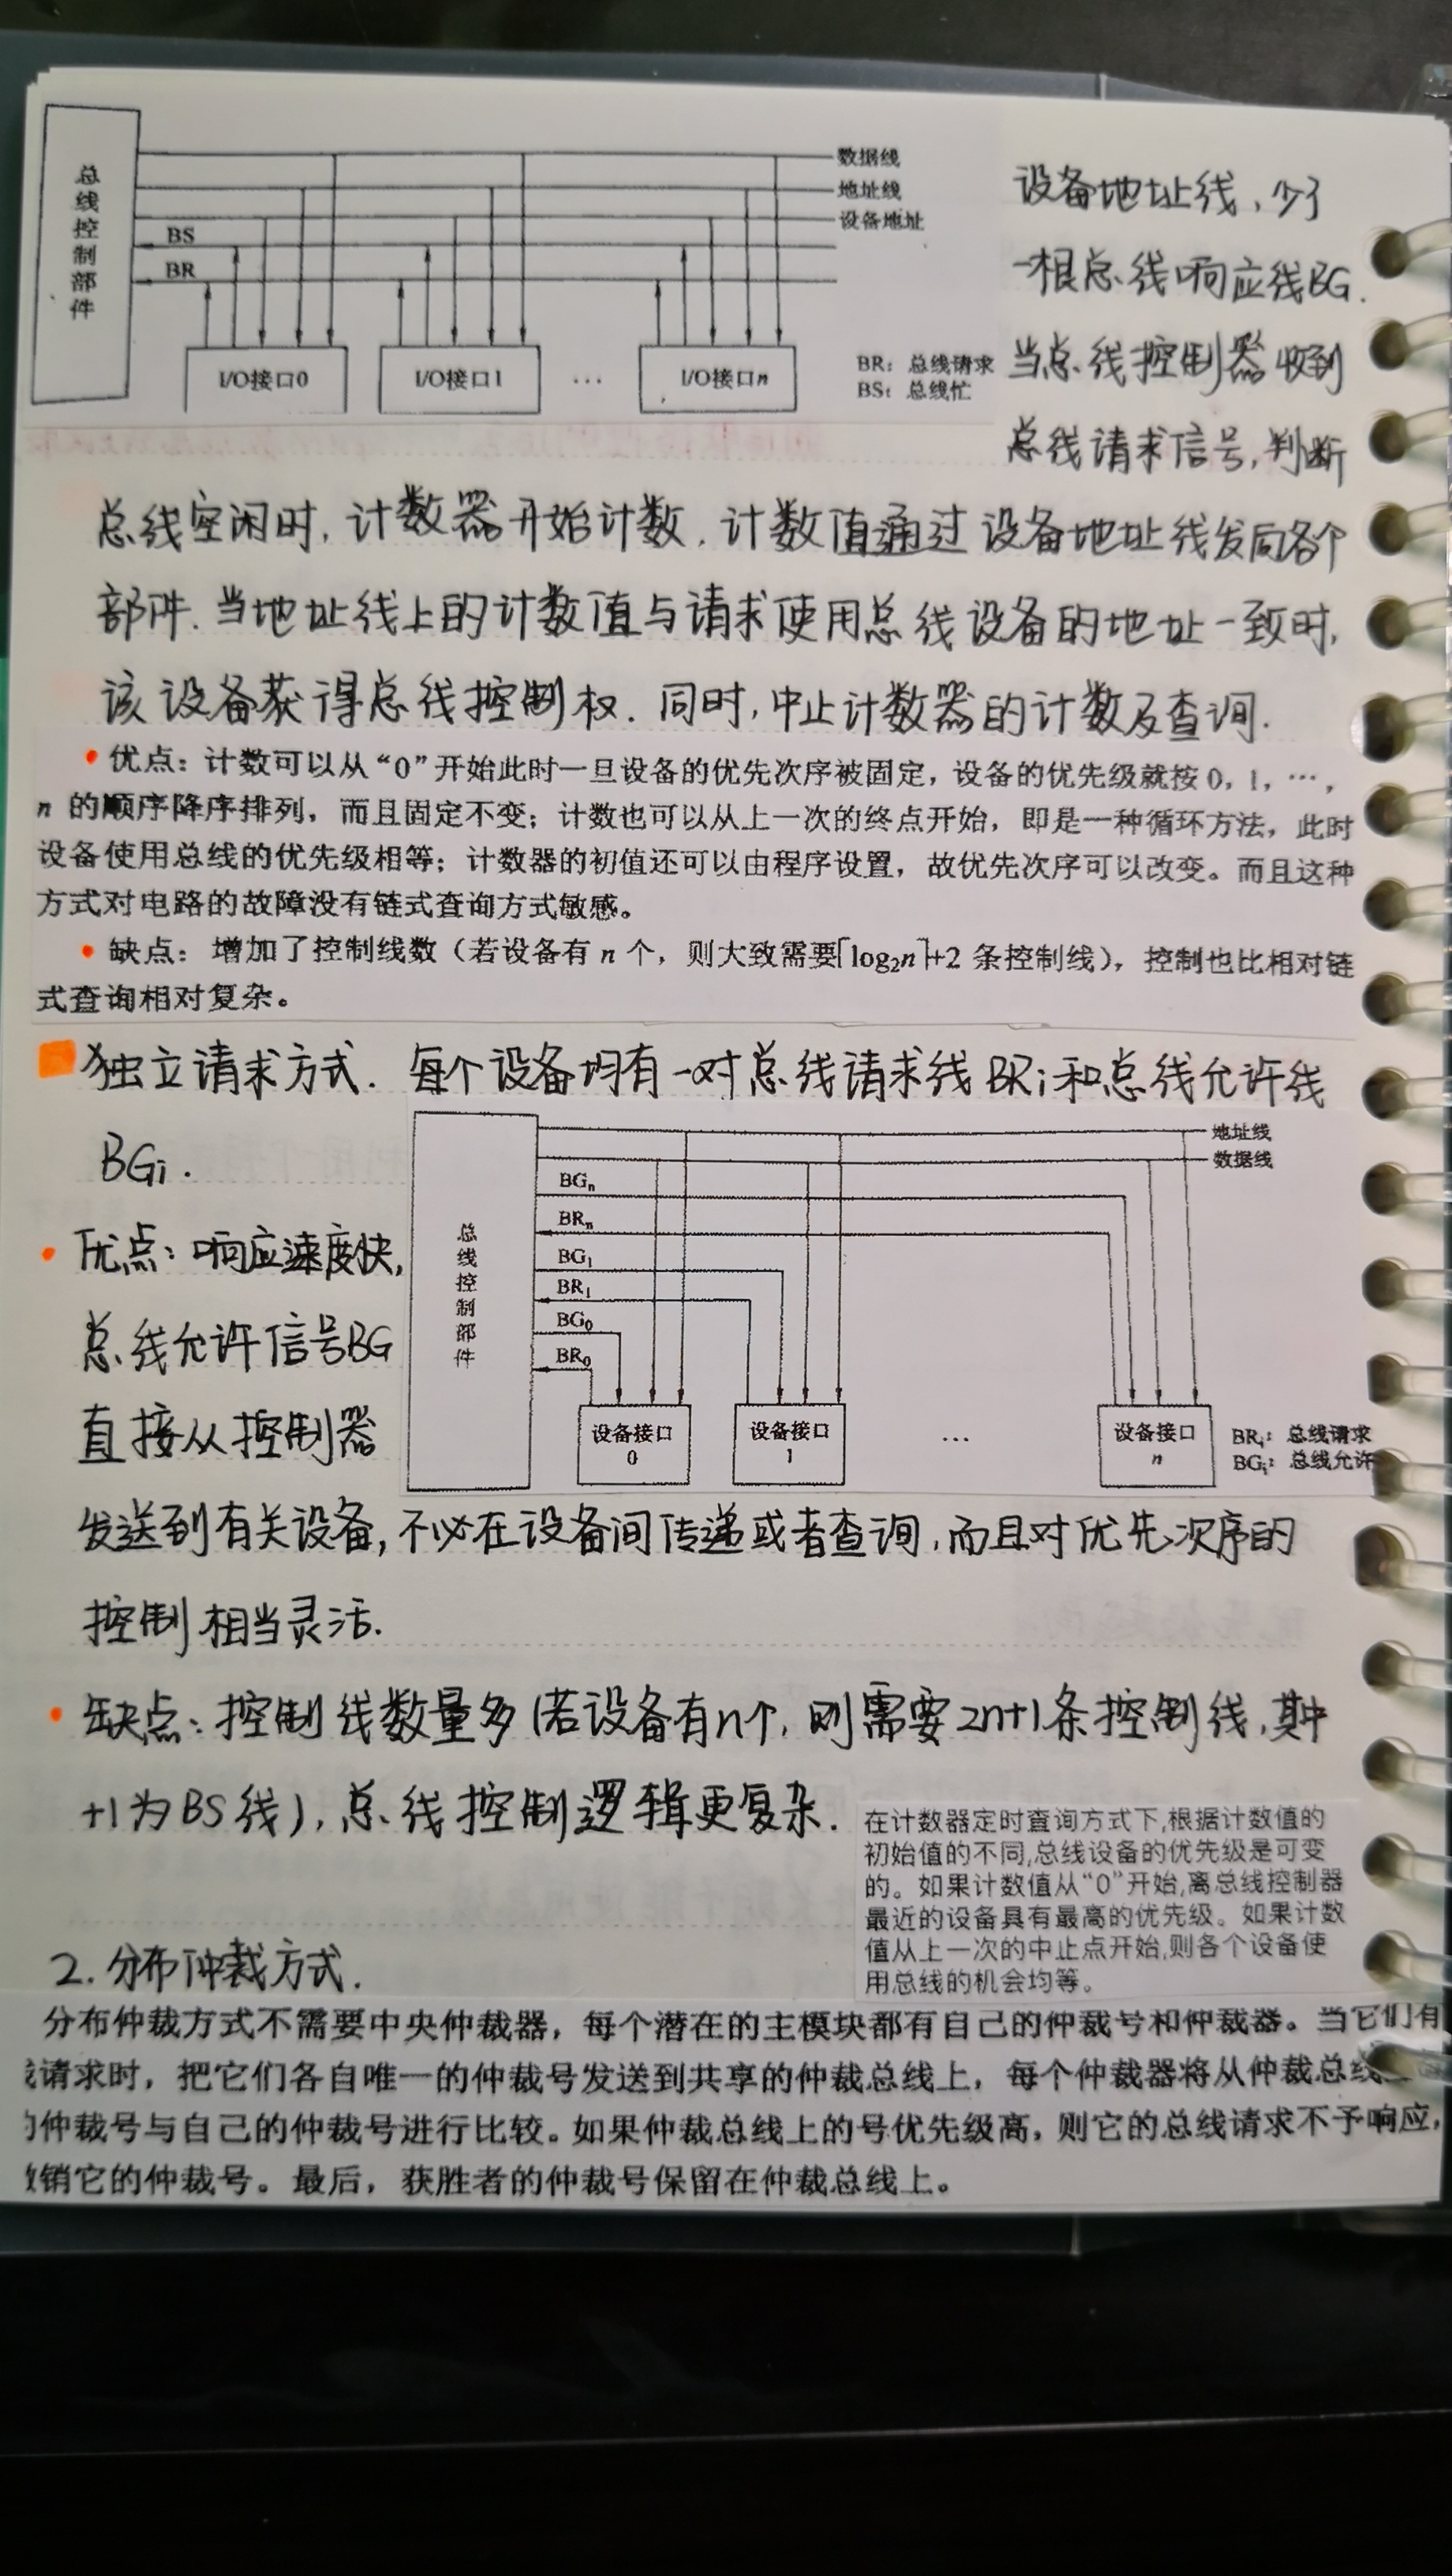 总线控制部件
数据线
地址线
设备地址
BS
BR
I/O接口0
I/O接口1
…
I/O接口n
BR：总线请求
BS：总线忙
设备地址线，少了
一根总线响应线BG.
当总线控制器收到
总线请求信号,判断
总线空闲时,计数器开始计数,计数值通过设备地址线发向各个
部件.当地址线上的计数值与请求使用总线设备的地址一致时,
该设备获得总线控制权.同时,中止计数器的计数及查询.
• 优点：计数可以从“0”开始此时一旦设备的优先次序被固定，设备的优先级就按 0，1，…，
n 的顺序降序排列，而且固定不变；计数也可以从上一次的终点开始，即是一种循环方法，此时
设备使用总线的优先级相等；计数器的初值还可以由程序设置，故优先次序可以改变。而且这种
方式对电路的故障没有链式查询方式敏感。
• 缺点：增加了控制线数（若设备有 n 个，则大致需要⌈log₂n⌉+2 条控制线），控制也比相对链
式查询相对复杂。
独立请求方式. 每个设备均有一对总线请求线BRi和总线允许线
BGi.
总线控制部件
地址线
数据线
BGn
BRn
BG1
BR1
BG0
BR0
设备接口
0
设备接口
1
…
设备接口
n
BRi：总线请求
BGi：总线允许
• 优点：响应速度快,
总线允许信号BG
直接从控制器
发送到有关设备,不必在设备间传递或者查询,而且对优先次序的
控制相当灵活.
• 缺点：控制线数量多(若设备有n个,则需要2n+1条控制线,其中
+1为BS线),总线控制逻辑更复杂.
在计数器定时查询方式下,根据计数值的
初始值的不同,总线设备的优先级是可变
的。如果计数值从“0”开始,离总线控制器
最近的设备具有最高的优先级。如果计数
值从上一次的中止点开始,则各个设备使
用总线的机会均等。
2.分布仲裁方式.
分布仲裁方式不需要中央仲裁器，每个潜在的主模块都有自己的仲裁号和仲裁器。当它们有
请求时，把它们各自唯一的仲裁号发送到共享的仲裁总线上，每个仲裁器将从仲裁总线
的仲裁号与自己的仲裁号进行比较。如果仲裁总线上的号优先级高，则它的总线请求不予响应，
撤销它的仲裁号。最后，获胜者的仲裁号保留在仲裁总线上。